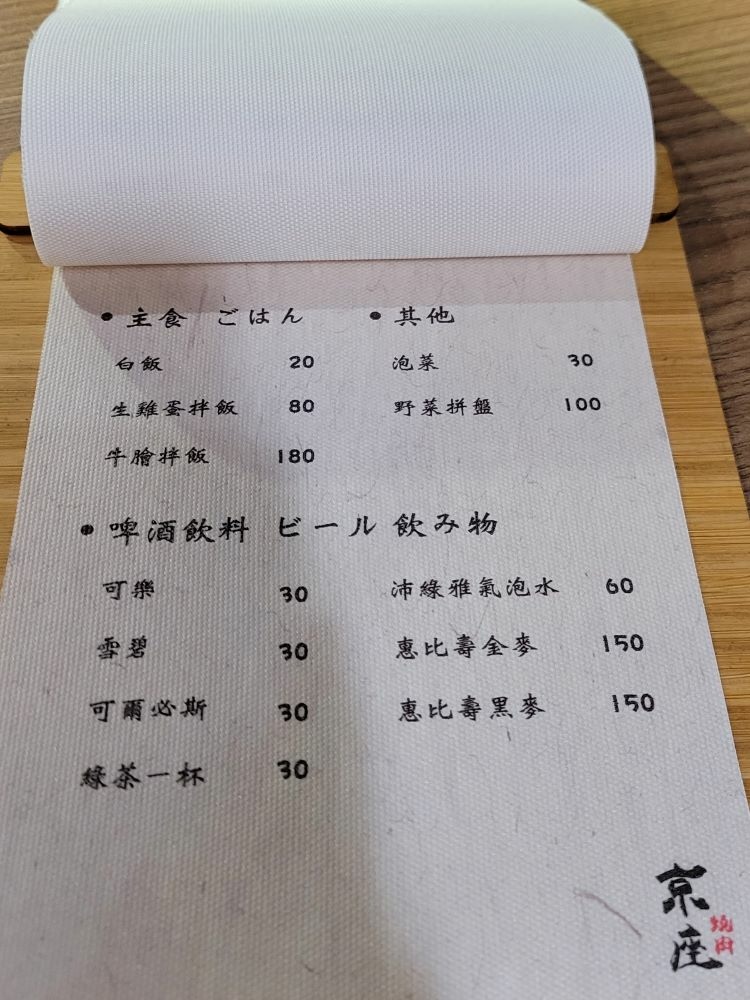 • 主食 ごはん
白飯 20
生雞蛋拌飯 80
牛膾拌飯 180
• 其他
泡菜 30
野菜拼盤 100
• 啤酒飲料 ビール 飲み物
可樂 30
雪碧 30
可爾必斯 30
綠茶一杯 30
沛綠雅氣泡水 60
惠比壽金麥 150
惠比壽黑麥 150
京座
燒肉